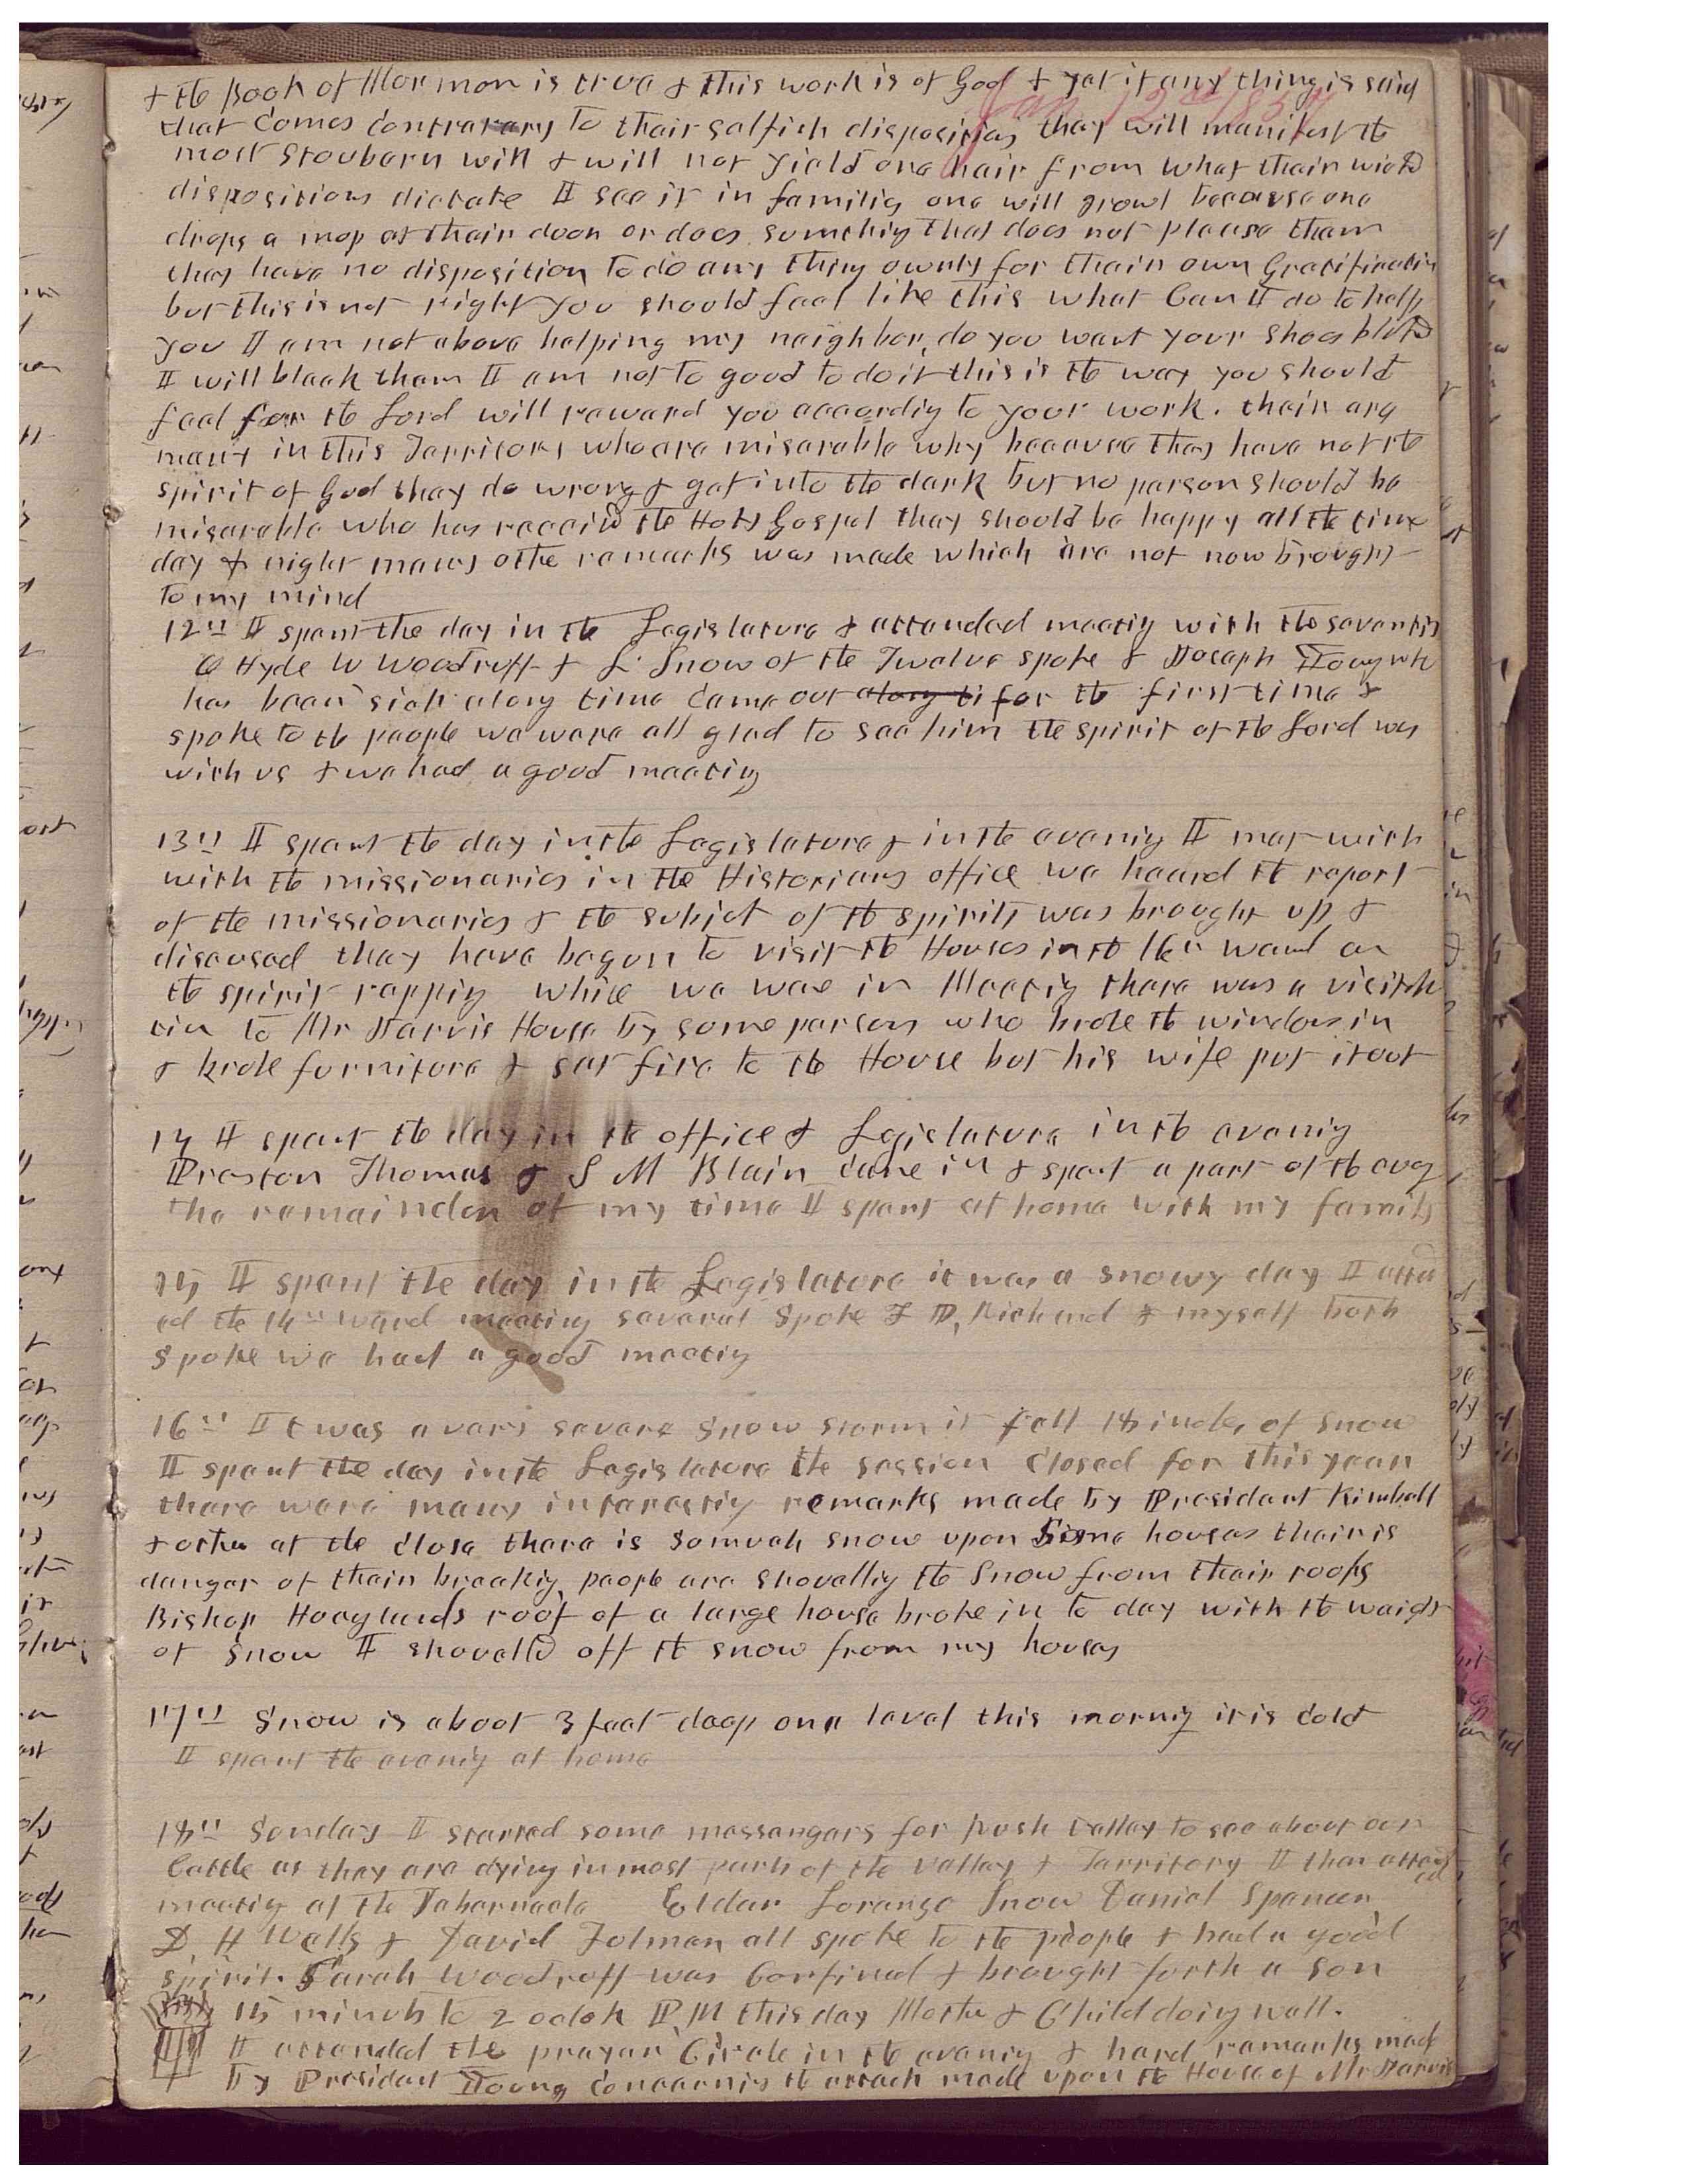 & the Book of Mormon is true & this work is of God & yet if any thing is said
Jan 12th 1857
that Comes Contrarary to their selfish disposition they will manifest the
most stouborn will & will not yield one hair from what their wicked
dispositions dictate I see it in families one will growl because one
drops a mop at their door or does somthig that does not please them
they have no disposition to do any thing ownly for their own Gratification
but this is not right you should feel like this what Can I do to help
you I am not above helping my neighbor, do you want your shoes blkd
I will black them I am not to good to do it this is the way you should
feel for the Lord will reward you accordig to your work. their are
many in this Territory who are miserable why because they have not the
spirit of God they do wrong & get into the dark but no person should be
miserable who has receivd the Holy Gospel they should be happy all the time
day & night many othe remarks was made which are not now brought
to my mind
12th I spent the day in the Legislature & attended meetig with the seventis
O Hyde W Woodruff & L. Snow of the Twelve spoke & Joseph Young who
has been sick along time Came out along ti for the first time &
spoke to the people we ware all glad to see him the spirit of the Lord was
with us & we had a good meetig
13th I spent the day in the Legislature & in the evenig I met with
with the missionaries in the Historians office we heard the report
of the missionaries & the subjet of the spirits was brought up &
discused they have begun to visit the Houses in the 16th ward on
the spirit rappig while we wae in Meetig there was a visitch
tin to Mr Jarvis House by some persons who broke the windows in
& broke furniture & set fire to the House but his wife put it out
14 I spent the day in the office & Legislature in the evenig
Preston Thomas & S M Blair Came in & spent a part of the eveg
the remainder of my time I spent at home with my family
15 I spent the day in the Legislature it was a snowy day I atten
ed the 14th ward meeting several Spoke F D, Richard & myself both
spoke we had a good meetig
16th It was a vary severe snow storm it fell 18 inches of snow
I spent the day in the Legislature the session Closed for this year
there were many interestig remarks made by President Kimball
& other at the Close there is somuch snow upon Some houses their is
danger of their breakig, people are shovellig the Snow from their roofs
Bishop Hoaglands roof of a large house broke in to day with the waight
of snow I shovelld off the snow from my houses
17th Snow is about 3 feet deep on a level this mornig it is cold
I spent the evenig at home
18th Sunday I started some messengers for Rush valley to see about our
Cattle as they are dying in most parts of the valley & Territory I then attend
ed
meetig at the Tabernacle Elder Lorenzo Snow Daniel Spencer
D. H Wells & David Folman all spoke to the people & had a good
spirit. Sarah Woodruff was Confined & brought forth a son
15 minuts to 2 oclok P.M this day Mother & Child doig well.
I attended the prayer Circle in the evenig & hard remarks made
by President Young Concernig the attack made upon the House of Mr Jarvis